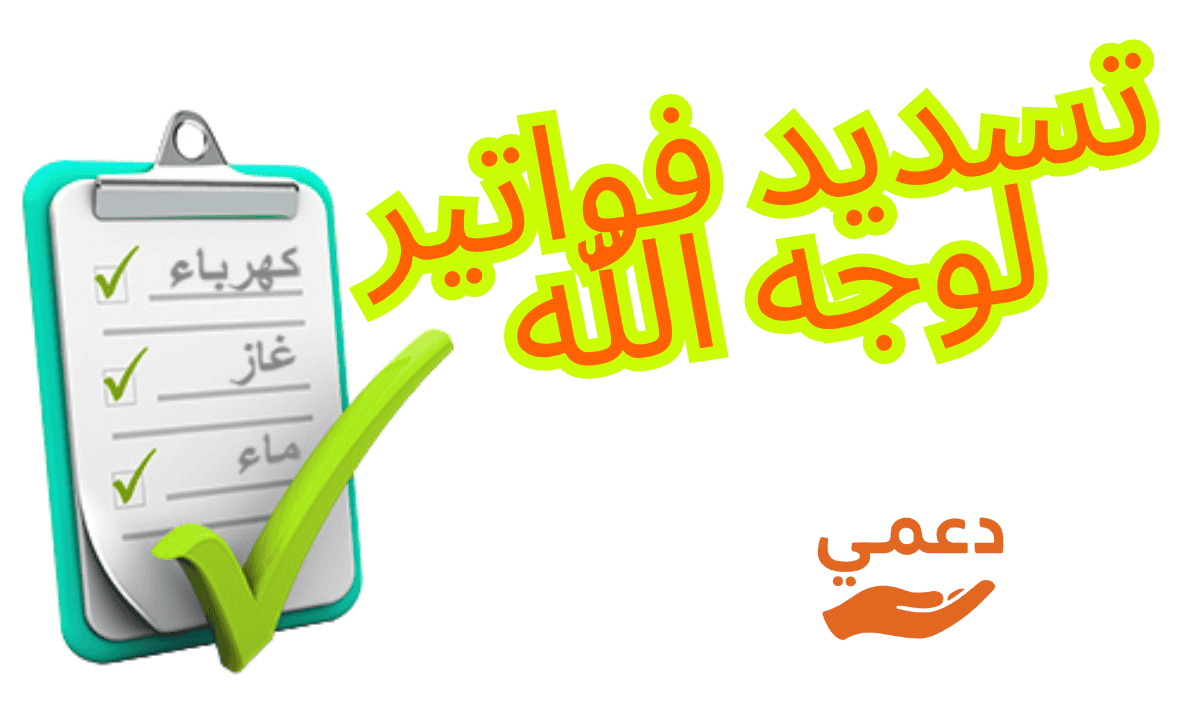 تسديد فواتير
لوجه الله
كهرباء
غاز
ماء
دعمي